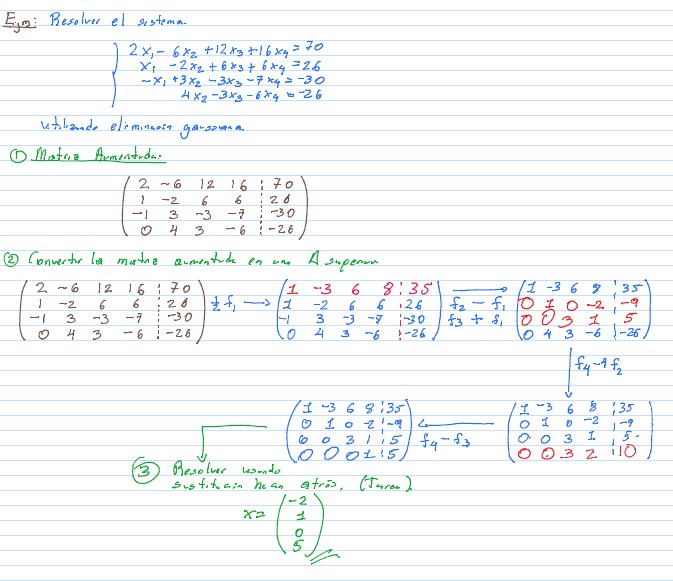 Ejm: Resolver el sistema.
2x₁ - 6x₂ + 12x₃ + 16x₄ = 70
x₁ - 2x₂ + 6x₃ + 6x₄ = 26
-x₁ + 3x₂ - 3x₃ - 7x₄ = -30
4x₂ - 3x₃ - 6x₄ = -26
utilizando eliminación gaussiana.
① Matriz Aumentada:
2 -6 12 16 ¦ 70
1 -2 6 6 ¦ 26
-1 3 -3 -7 ¦ -30
0 4 3 -6 ¦ -26
② Convertir la matriz aumentada en una Δ superior
2 -6 12 16 ¦ 70
1 -2 6 6 ¦ 26
-1 3 -3 -7 ¦ -30
0 4 3 -6 ¦ -26
½ f₁ →
1 -3 6 8 ¦ 35
1 -2 6 6 ¦ 26
-1 3 -3 -7 ¦ -30
0 4 3 -6 ¦ -26
f₂ - f₁
f₃ + f₁
1 -3 6 8 ¦ 35
0 1 0 -2 ¦ -9
0 0 3 1 ¦ 5
0 4 3 -6 ¦ -26
f₄ - 4f₂
1 -3 6 8 ¦ 35
0 1 0 -2 ¦ -9
0 0 3 1 ¦ 5
0 0 3 2 ¦ 10
f₄ - f₃
1 -3 6 8 ¦ 35
0 1 0 -2 ¦ -9
0 0 3 1 ¦ 5
0 0 0 1 ¦ 5
③ Resolver usando
sustitución hacia atrás. (Tarea)
x =
-2
1
0
5